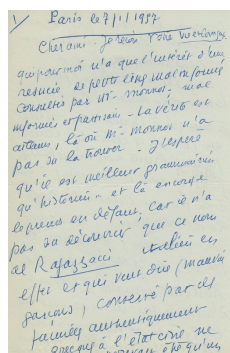 1/ Paris le 7/1/1957
Cher ami - Je reçois l'une
qui pour moi n'a que l'intérêt d'un
résumé de
consultés par Mr. Monnos. mal
informé et partisan - La vérité est
ailleurs, là où Mr Monnos n'a
pas su la trouver - J'espère
qu'il est meilleur grammairien
qu'historien - et là encore je
le prends en défaut, car il n'a
pas su découvrir que ce nom
de Ragazzacci italien en
effet et qui veut dire (mauvais
garçons), conservé par des
familles authentiquement
à l'état civil ne